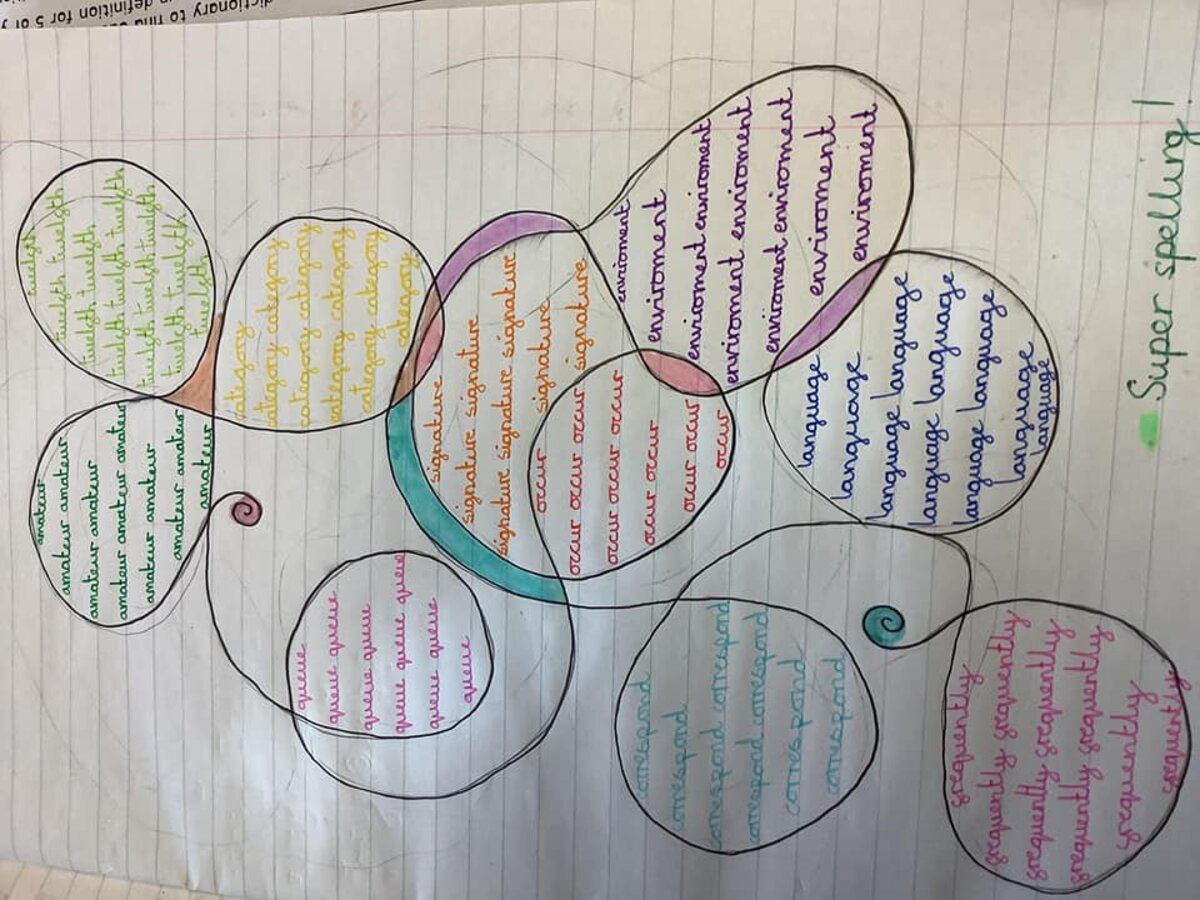 dictionary to find
definition for 5 of
amateur
amateur amateur
amateur amateur
amateur amateur amateur
amateur amateur
amateur amateur
amateur
twelfth
twelfth twelfth
twelfth twelfth
twelfth twelfth twelfth
twelfth twelfth twelfth
twelfth twelfth
twelfth
category
category category
category category
category category
category category
category
queue
queue queue
queue queue
queue queue queue
queue queue
queue
signature
signature signature
signature signature signature
signature
signature
occur
occur occur occur
occur occur occur
occur occur
occur occur
occur
enviroment
enviroment
enviroment enviroment
enviroment enviroment
enviroment enviroment
enviroment
enviroment
correspond
correspond
correspond correspond
correspond correspond
correspond
correspond
language
language
language language
language language
language language
language
language
frequently
frequently frequently
frequently frequently
frequently frequently
frequently
frequently
Super spelling!